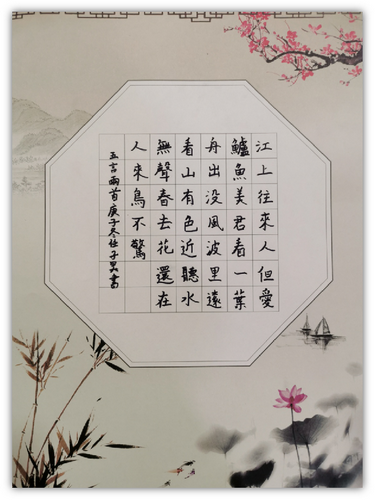 江上往來人但愛
鱸魚美君看一葉
舟出没風波里遠
看山有色近聽水
無聲春去花還在
人來鳥不驚
五言兩首庚子冬任子昊書